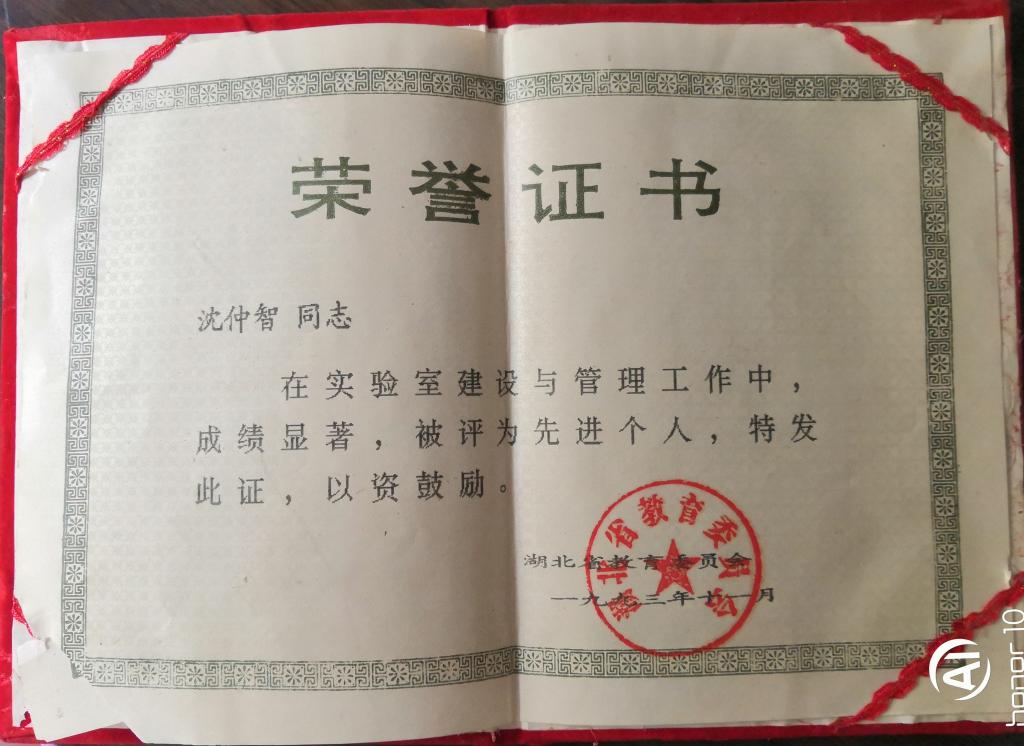 荣誉证书
沈仲智 同志
在实验室建设与管理工作中，
成绩显著，被评为先进个人，特发
此证，以资鼓励。
湖北省教育委员会
一九九三年十一月
湖北省教育委员会
AI
honor 10